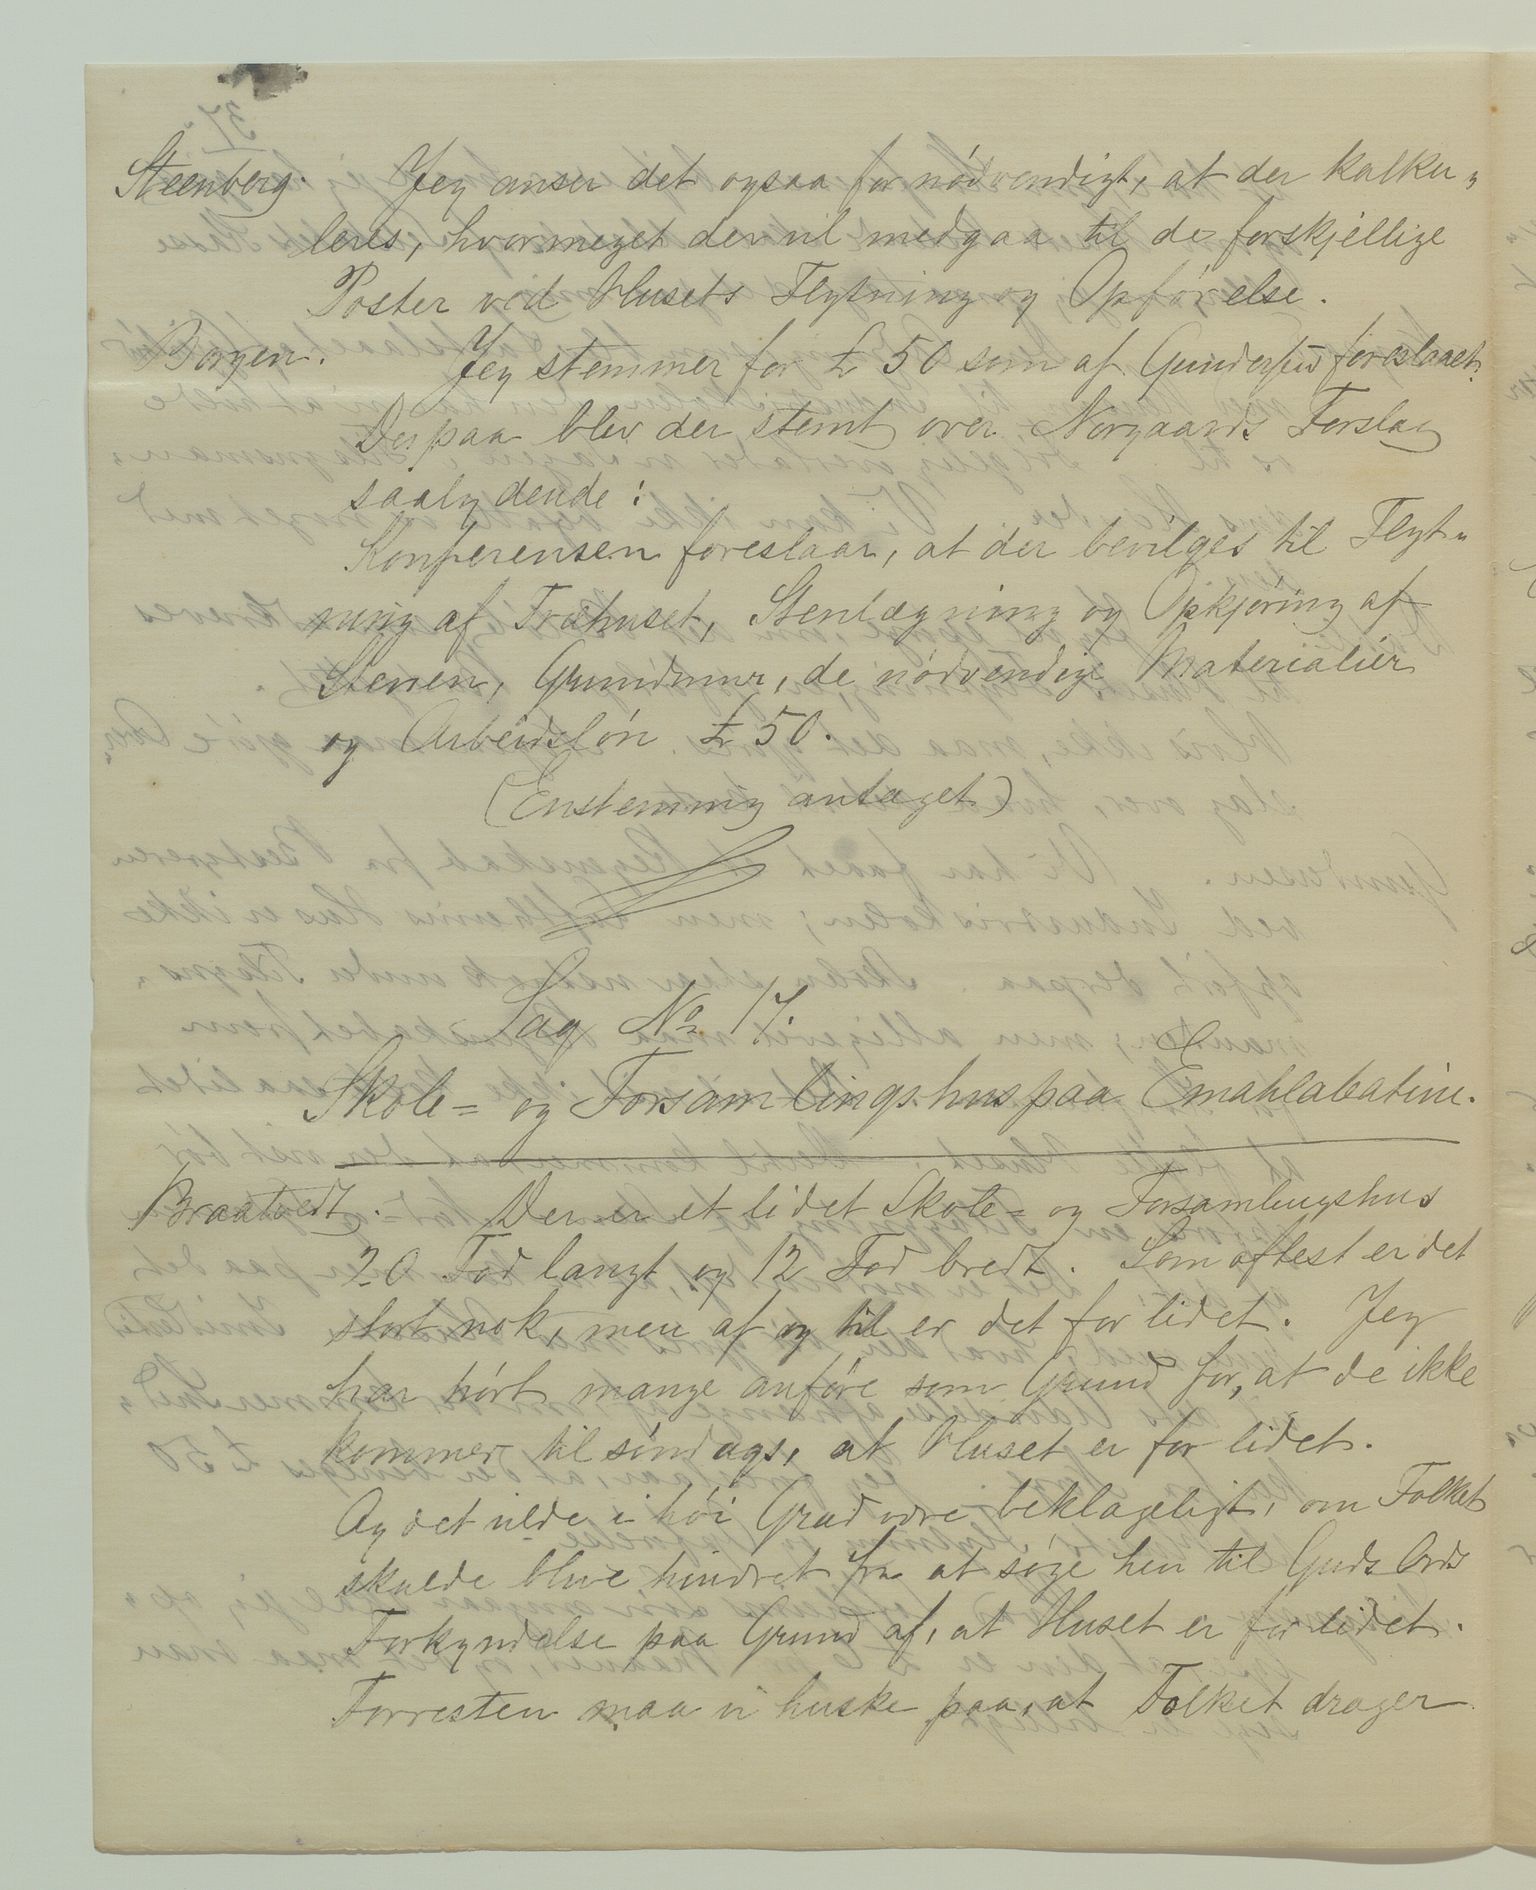 Steenberg. Jeg anser det ogsaa for nødvendigt, at der kalku-
leres, hvormeget der vil medgaa til de forskjellige
Poster ved Husets Flytning og Opførelse.
Borgen. Jeg stemmer for £ 50 som af Gundersen foreslaaet.
Derpaa blev der stemt over Norgaards Forslag
saalydende:
Konferensen foreslaar, at der bevilges til Flyt-
ning af Træhuset, Stenlægning og Opkjøring af
Stenen, Grundmur, de nødvendige Materialier
og Arbeidsløn £ 50.
(Enstemmig antaget)
Sag No 17.
Skole= og Forsamlingshus paa Emahlabatini.
Braatvedt. Der er et lidet Skole= og Forsamlingshus
20 Fod langt og 12 Fod bredt. Som oftest er det
stort nok, men af og til er det for lidet. Jeg
har hørt mange anføre som Grund for, at de ikke
kommer til søndags, at Huset er for lidet.
Og det vilde i høi Grad være beklageligt, om Folket
skulde blive hindret fra at søge hen til Guds Ords
Forkyndelse paa Grund af, at Huset er for lidet.
Forresten maa vi huske paa, at Folket drager